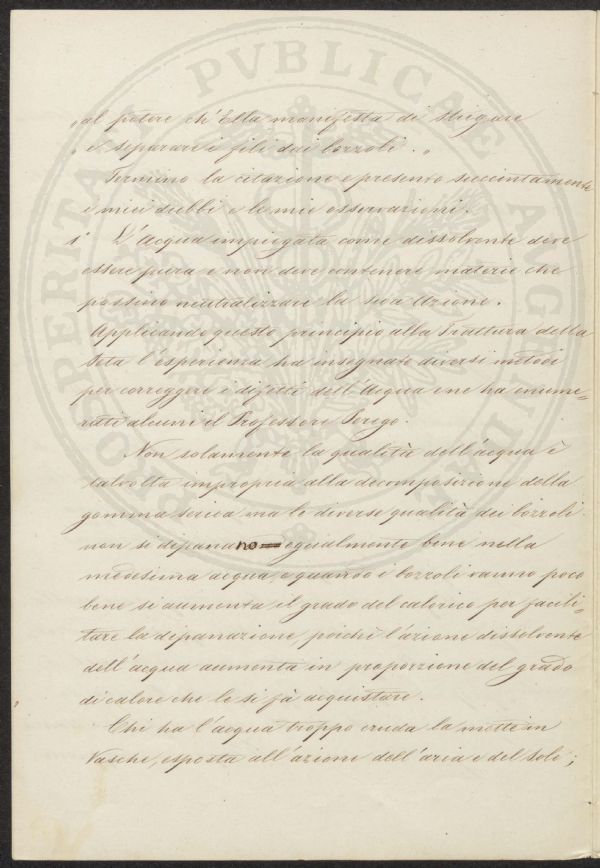 „al potere ch'Ella manifesta di strigare
„e separare i fili dai bozzoli. „
Termino la citazione e presento succintamente
i miei dubbi e le mie osservazioni.
1° L'Acqua impiegata come dissolvente deve
essere pura e non deve contenere materie che
possino neutralizzare la sua Azione.
Applicando questo principio alla Trattura della
Seta l'esperienza ha insegnato diversi metodi
per correggere i difetti dell'Acqua e ne ha enume-
rati alcuni il Professore
Non solamente la qualità dell'acqua è
talvolta impropria alla decomposizione della
gomma serica, ma le diverse qualità dei bozzoli
non si dipanano egualmente bene nella
medesima acqua, e quando i bozzoli vanno poco
bene si aumenta il grado del calorico per facili-
tare la dipanazione, poiché l'azione dissolvente
dell'acqua aumenta in proporzione del grado
di calore che le si fà acquistare.
Chi ha l'acqua troppo cruda la mette in
Vasche, esposta all'azione dell'aria e del Sole;
PROSPERITATI PVBLICAE AVGENDAE